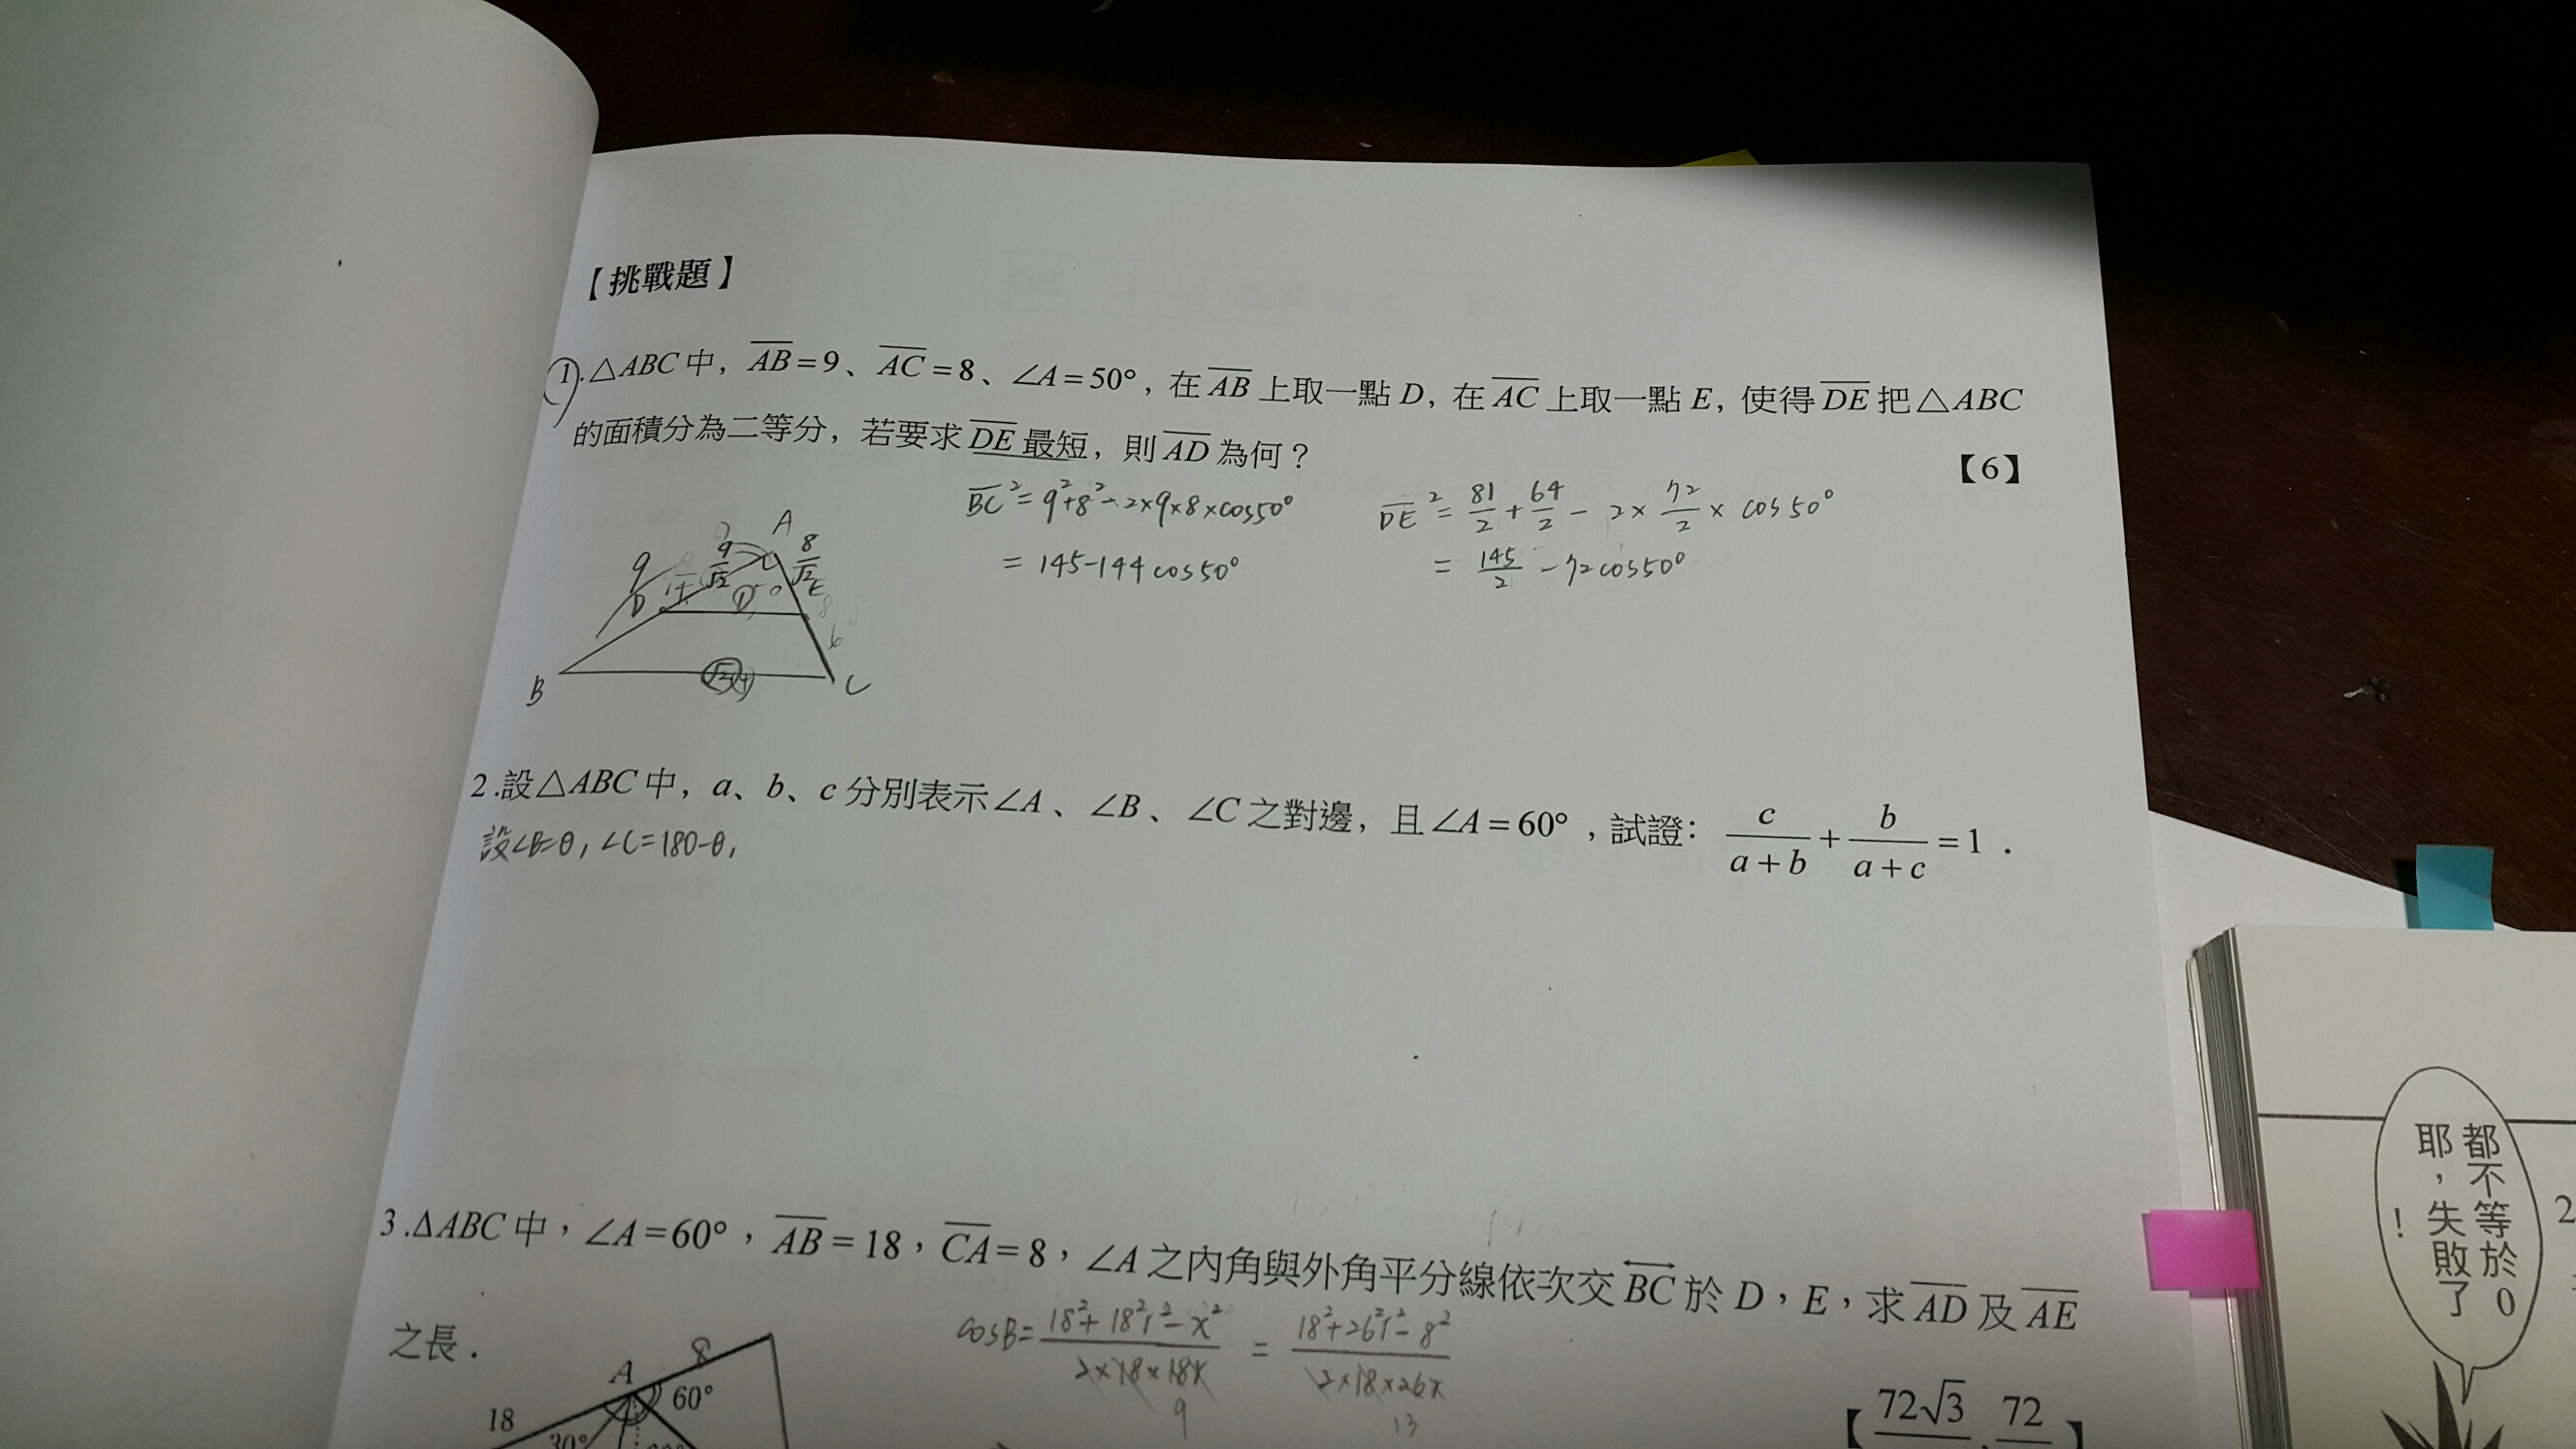 【挑戰題】
1.△ABC中，AB=9、AC=8、∠A=50°，在AB上取一點D，在AC上取一點E，使得DE把△ABC
的面積分為二等分，若要求DE最短，則AD為何？
【6】
BC²=9²+8²-2×9×8×cos50°
=145-144cos50°
DE²=81/2+64/2-2×72/2×cos50°
=145/2-72cos50°
A
9
9/√2
8/√2
D
E
①
6
B
C
2.設△ABC中，a、b、c分別表示∠A、∠B、∠C之對邊，且∠A=60°，試證：c/(a+b)+b/(a+c)=1．
設∠B=θ，∠C=180-θ，
3.ΔABC中，∠A=60°，AB=18，CA=8，∠A之內角與外角平分線依次交BC於D，E，求AD及AE
之長．
cosB=(18²+18²r²-x²)/(2×18×18r)=(18²+26²r²-8²)/(2×18×26r)
9
13
A
8
18
60°
30°
【72√3，72】
都不等於0
耶，失敗了
！
2